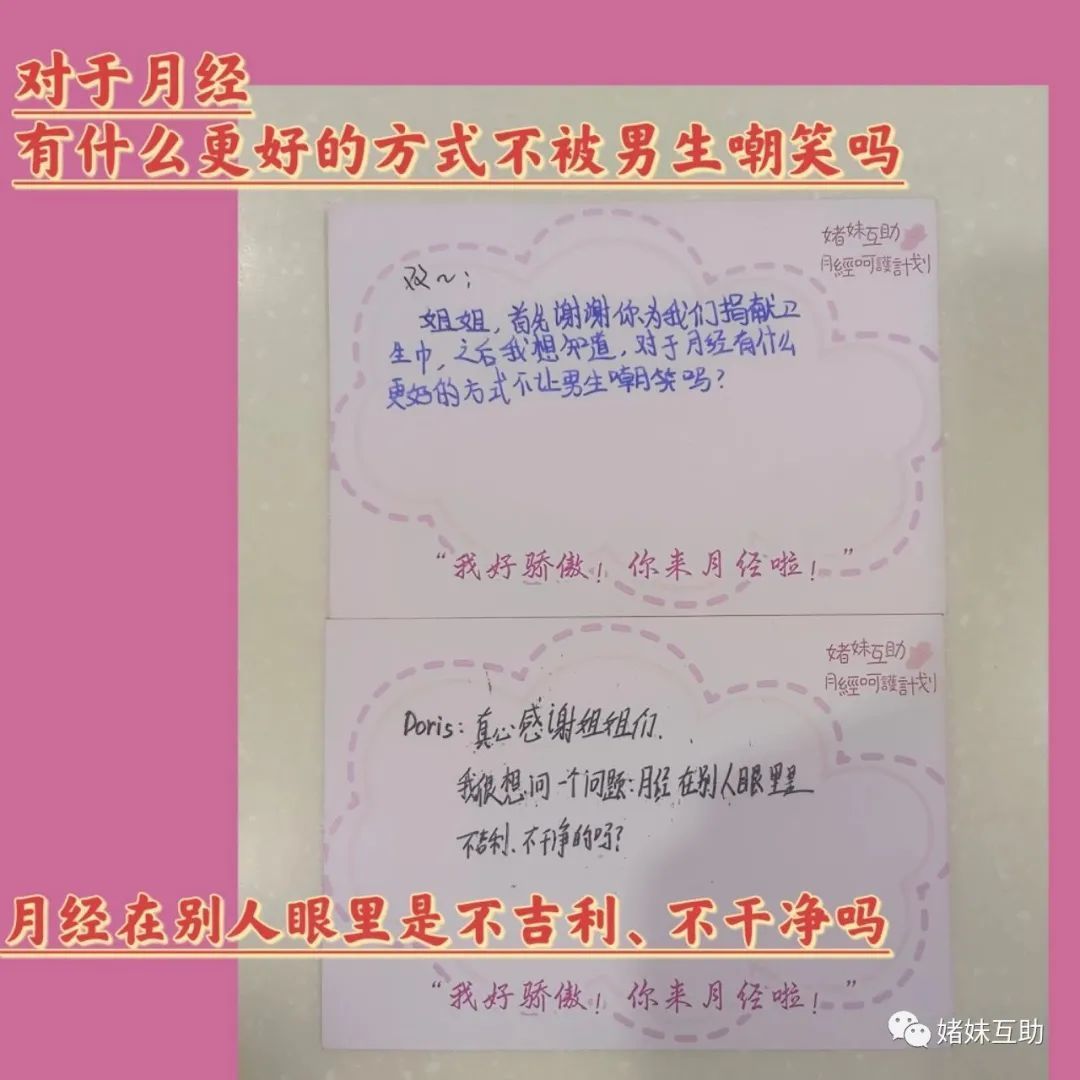 对于月经
有什么更好的方式不被男生嘲笑吗
媎妹互助
月經呵護計划
双～：
姐姐，首先谢谢你为我们捐献卫
生巾，之后我想知道，对于月经有什么
更好的方式不让男生嘲笑吗？
“我好骄傲！你来月经啦！”
媎妹互助
月經呵護計划
Doris：真心感谢姐姐们．
我很想问一个问题：月经在别人眼里是
不吉利、不干净的吗？
月经在别人眼里是不吉利、不干净吗
“我好骄傲！你来月经啦！”
媎妹互助